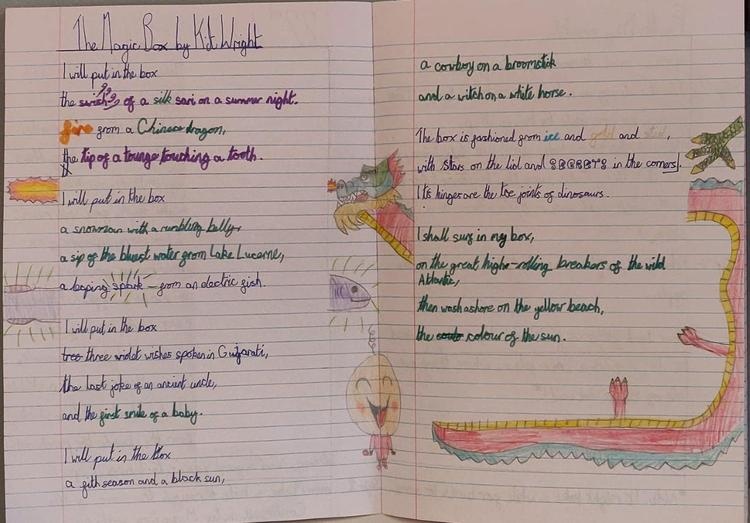 The Magic Box by Kit Wright
I will put in the box
the swish of a silk sari on a summer night.
fire from a Chinese dragon,
the tip of a tounge touching a tooth.
I will put in the box
a snowman with a rumbling belly,
a sip of the bluest water from Lake Lucerne,
a leaping spark from an electric fish.
I will put in the box
three violet wishes spoken in Gujarati,
the last joke of an ancient uncle,
and the first smile of a baby.
I will put in the box
a fifth season and a black sun,
a cowboy on a broomstick
and a witch on a white horse.
The box is fashioned from ice and gold and steel,
with stars on the lid and SECRETS in the corners.
Its hinges are the toe joints of dinosaurs.
I shall surf in my box,
on the great high-rolling breakers of the wild
Atlantic,
then wash ashore on the yellow beach,
the colour of the sun.